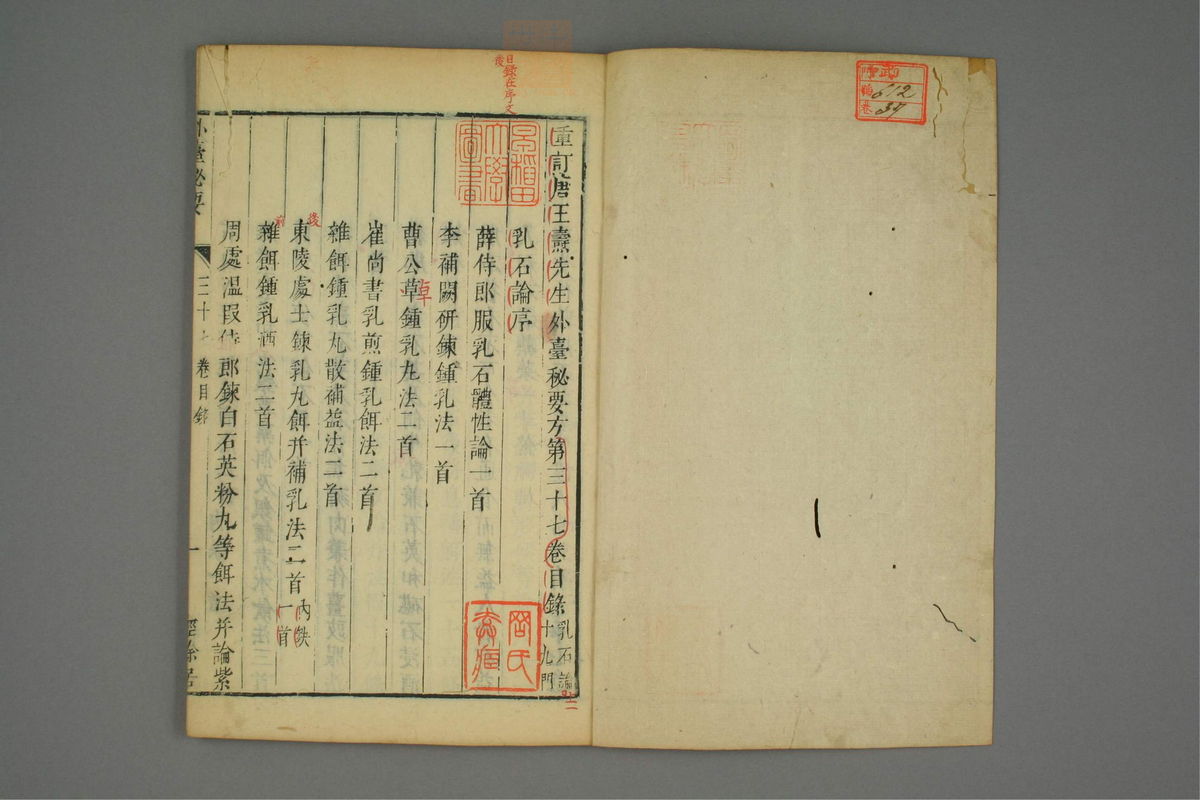 重訂唐王燾先生外臺秘要方第三十七卷目錄乳石論十九門
乳石論序
薛侍郎服乳石體性論一首
李補闕研鍊鍾乳法一首
曹公草鍾乳丸法二首
崔尚書乳煎鍾乳餌法二首
雜餌鍾乳丸散補益法三首
東陵處士鍊乳丸餌并補乳法二首內缺一首
雜餌鍾乳酒法二首
周處溫叚侍郎鍊白石英粉丸等餌法并論紫
外臺秘要
三十七
卷目錄
一
經餘居
目錄在序文後
卓
後
前
早稻田大學圖書
612
39